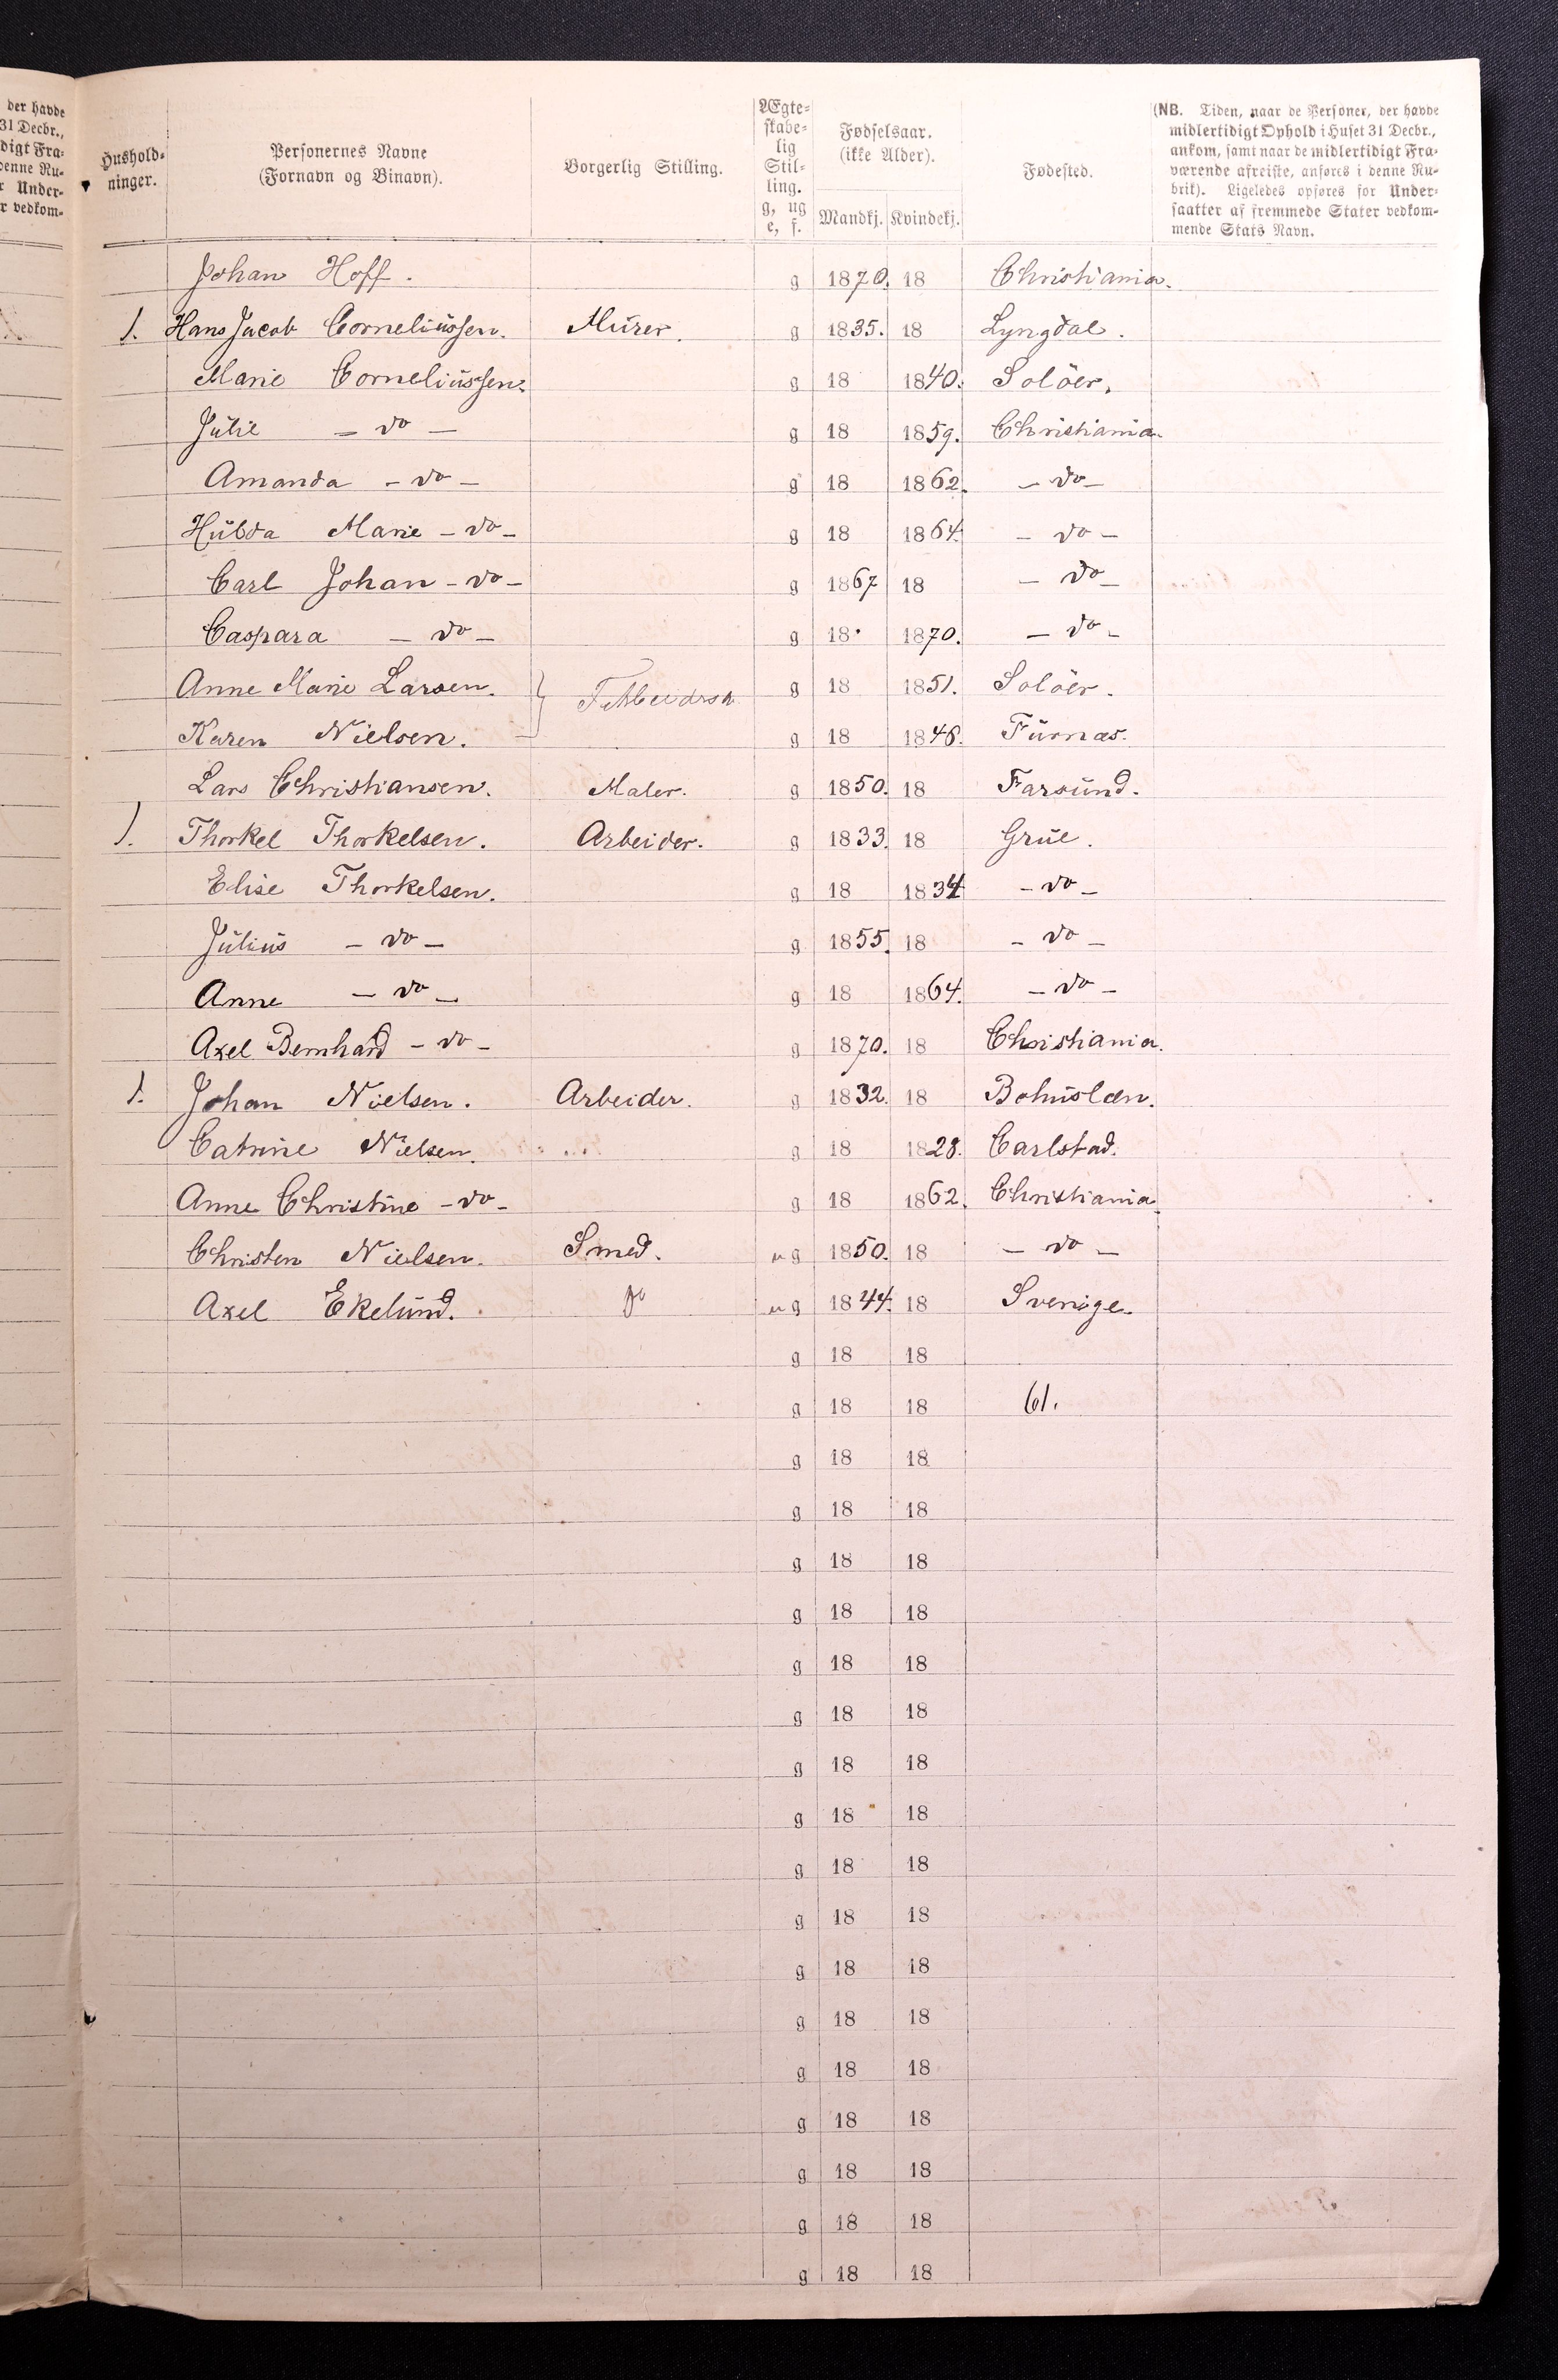 der havde
31 Decbr.,
digt Fra-
denne Ru-
r Under-
r vedkom-
Hushold-
ninger.
Personernes Navne
(Fornavn og Binavn).
Borgerlig Stilling.
Ægte-
skabe-
lig
Stil-
ling.
g, ug
e, f.
Fødselsaar.
(ikke Alder).
Mandkj. Kvindekj.
Fødested.
(NB. Tiden, naar de Personer, der havde
midlertidigt Ophold i Huset 31 Decbr.,
ankom, samt naar de midlertidigt Fra-
værende afreiste, anføres i denne Ru-
brik). Ligeledes opføres for Under-
saatter af fremmede Stater vedkom-
mende Stats Navn.
Johan Hoff. g 1870. 18 Christiania.
1. Hans Jacob Corneliussen. Murer. g 1835. 18 Lyngdal.
Marie Corneliussen. g 18 1840. Solöer.
Julie - do - g 18 1859. Christiania.
Amanda - do - g 18 1862. - do -
Hulda Marie - do - g 18 1864. - do -
Carl Johan - do - g 1867 18 - do -
Caspara - do - g 18 1870. - do -
Anne Marie Larsen. g 18 1851. Solöer.
Karen Nielsen. g 18 1848. Furnæs.
Lars Christiansen. Maler. g 1850. 18 Farsund.
1. Thorkel Thorkelsen. Arbeider. g 1833. 18 Grue.
Elise Thorkelsen. g 18 1834 - do -
Julius - do - g 1855. 18 - do -
Anne - do - g 18 1864. - do -
Axel Bernhard - do - g 1870. 18 Christiania.
1. Johan Nielsen. Arbeider. g 1832. 18 Bohuslæn.
Catrine Nielsen. g 18 1828. Carlstad.
Anne Christine - do - g 18 1862. Christiania.
Christen Nielsen. Smed. ug 1850. 18 - do -
Axel Ekelund. do ug 1844. 18 Sverige.
g 18 18
g 18 18 61.
g 18 18
g 18 18
g 18 18
g 18 18
g 18 18
g 18 18
g 18 18
g 18 18
g 18 18
g 18 18
g 18 18
g 18 18
g 18 18
g 18 18
g 18 18
g 18 18
g 18 18